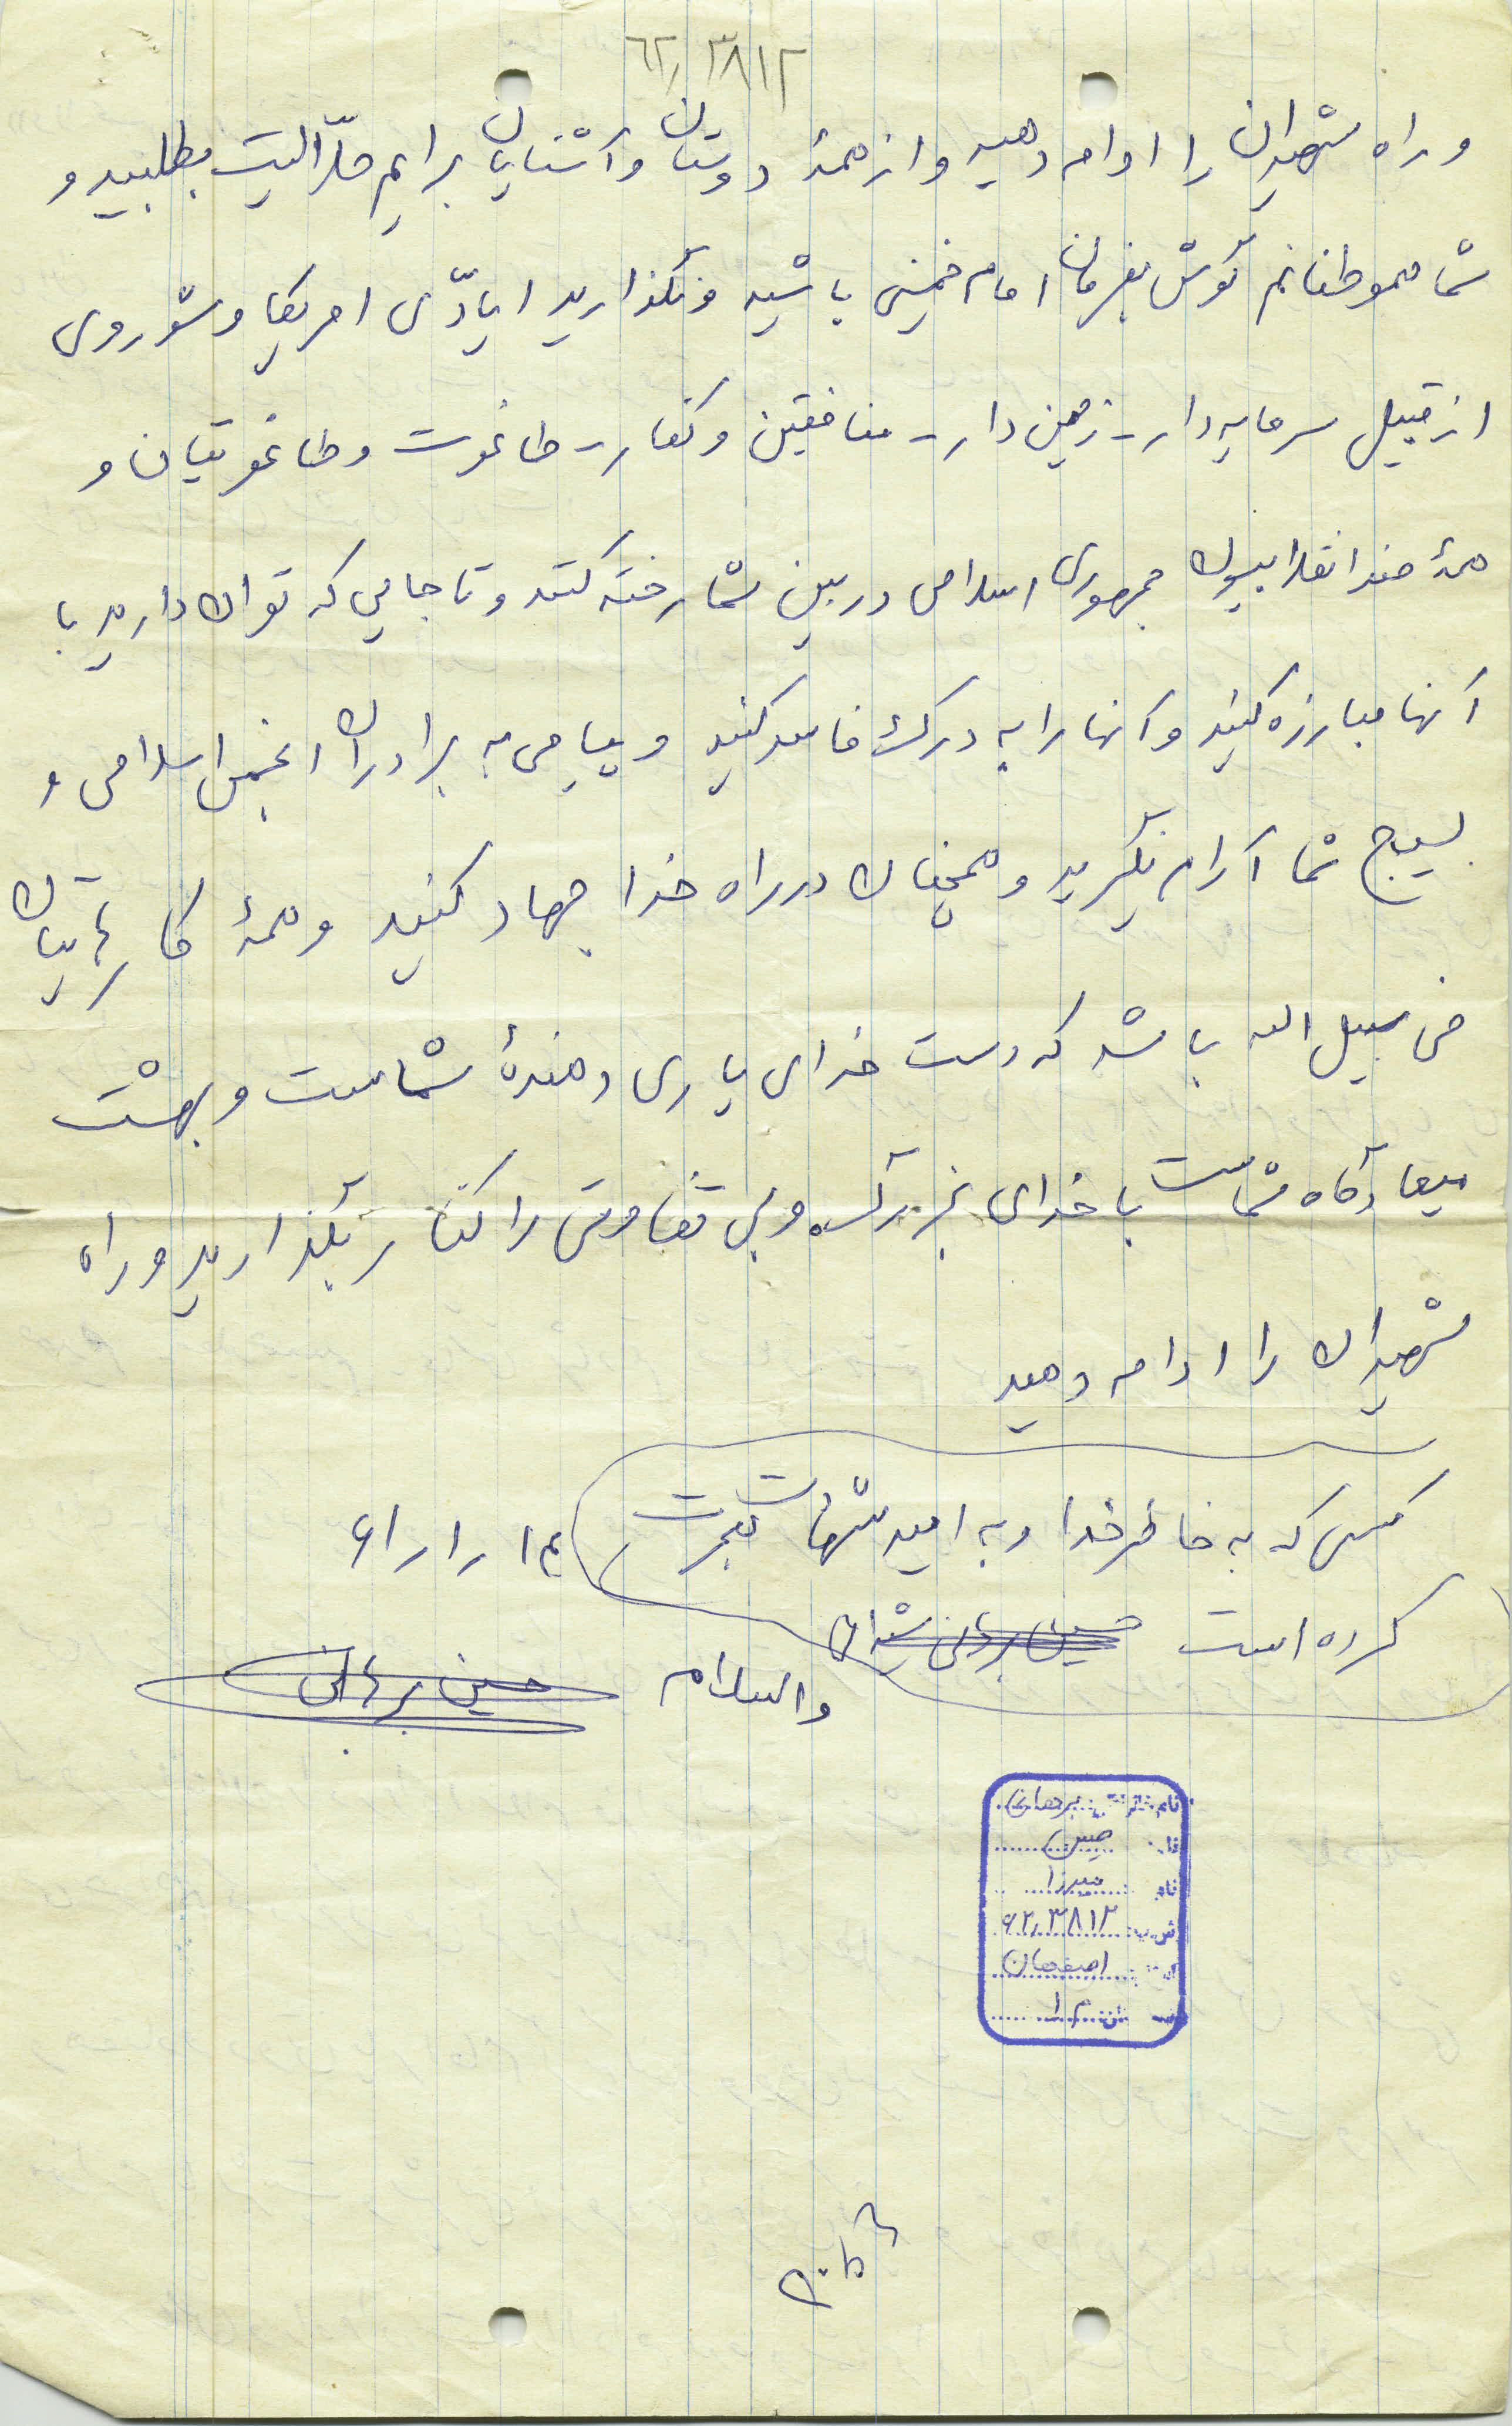 ۶۲٫۳۸۱۲
و راه شهیدان را ادامه دهید و از همهٔ دوستان و آشنایان برایم حلّالیت بطلبید و
شما هموطنانم گوش بفرمان امام خمینی باشید و نگذارید ایادّی امریکا و شوروی
از قبیل سرمایه‌دار - زمین‌دار - منافقین و کفار - طاغوت و طاغوتیان و
همهٔ ضد انقلابیون جمهوری اسلامی در بین شما رخنه کنند و تا جایی که توان دارید با
آنها مبارزه کنید و آنها را به درک فاصد کنید و پیامی به برادران انجمن اسلامی و
بسیج شما آرام نگیرید و همچنان در راه خدا جهاد کنید و همهٔ کارهایتان
فی سبیل الله باشد که دست خدای یاری دهندهٔ شماست و بهشت
میعادگاه شماست با خدای بزرگ و بی تفاوتی را کنار بگذارید و راه
شهیدان را ادامه دهید
کسی که به خاطر خدا و به امید شهادت هجرت
کرده است
والسلام حسین برهانی
نام برهانی
نام حسین
نام میرزا
ش پ ۶۲٫۳۸۱۲
اصفهان